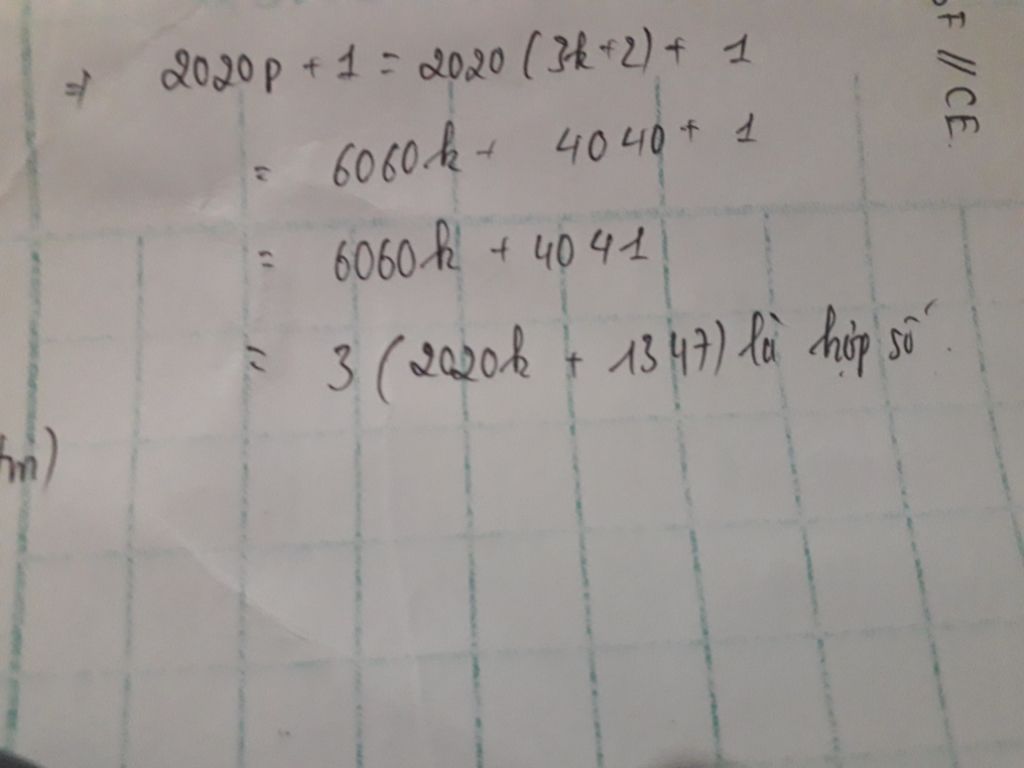 ⇒ 2020p + 1 = 2020 (3k+2) + 1
= 6060k + 4040 + 1
= 6060k + 4041
= 3 (2020k + 1347) là hợp số.
tm)
DF // CE